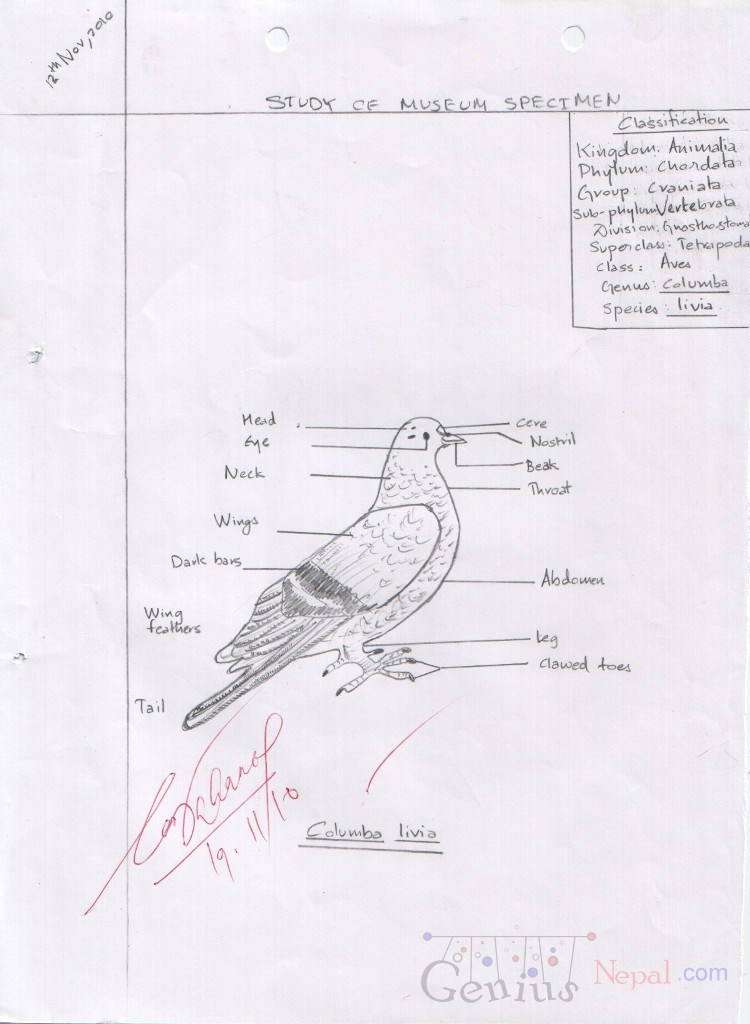 12th Nov, 2010
STUDY OF MUSEUM SPECIMEN
Classification
Kingdom: Animalia
Phylum: Chordata
Group: Craniata
Sub-phylum Vertebrata
Division: Gnasthostoma
Superclass: Tetrapoda
Class: Aves
Genus: Columba
Species: livia
Head
Eye
Neck
Wings
Dark bars
Wing
feathers
Tail
Cere
Nostril
Beak
Throat
Abdomen
Leg
Clawed toes
19.11/10
Columba livia
Genius Nepal.com